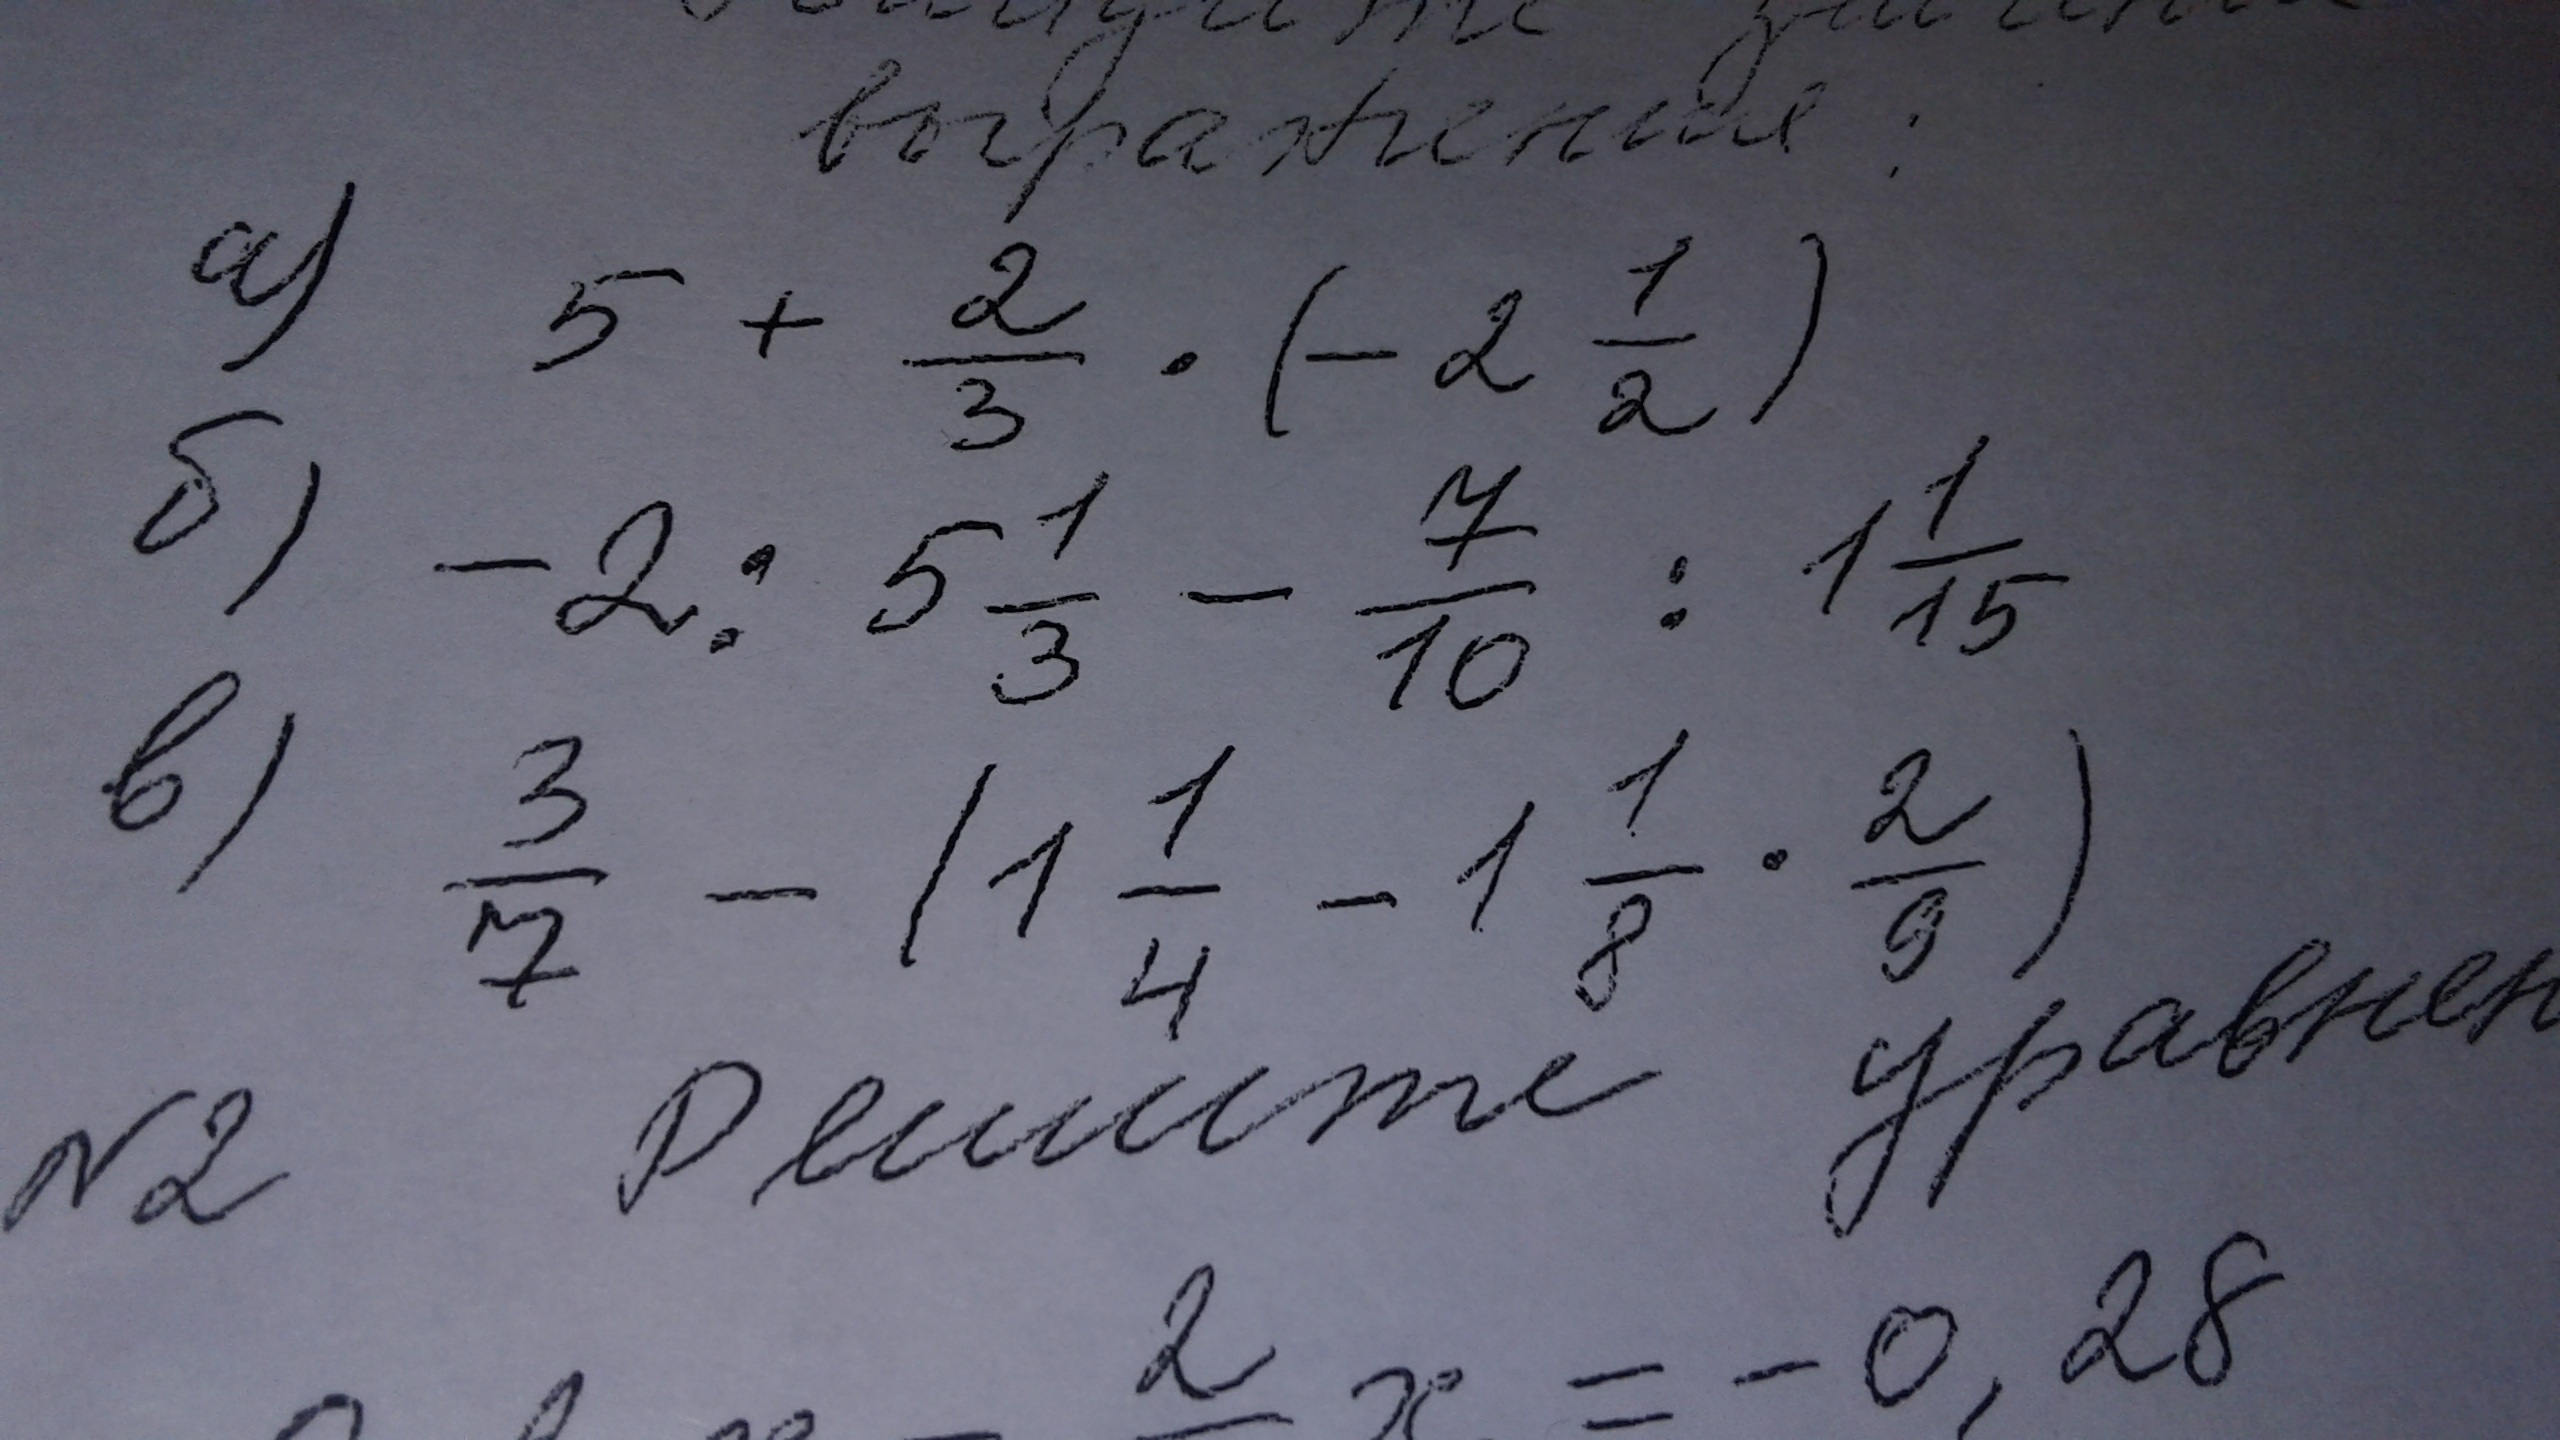 выражение:
а) 5 + 2/3 · (-2 1/2)
б) -2 : 5 1/3 - 7/10 : 1 1/15
в) 3/7 - (1 1/4 - 1 1/8 · 2/9)
N2 Решите уравнен
2 x = -0,28